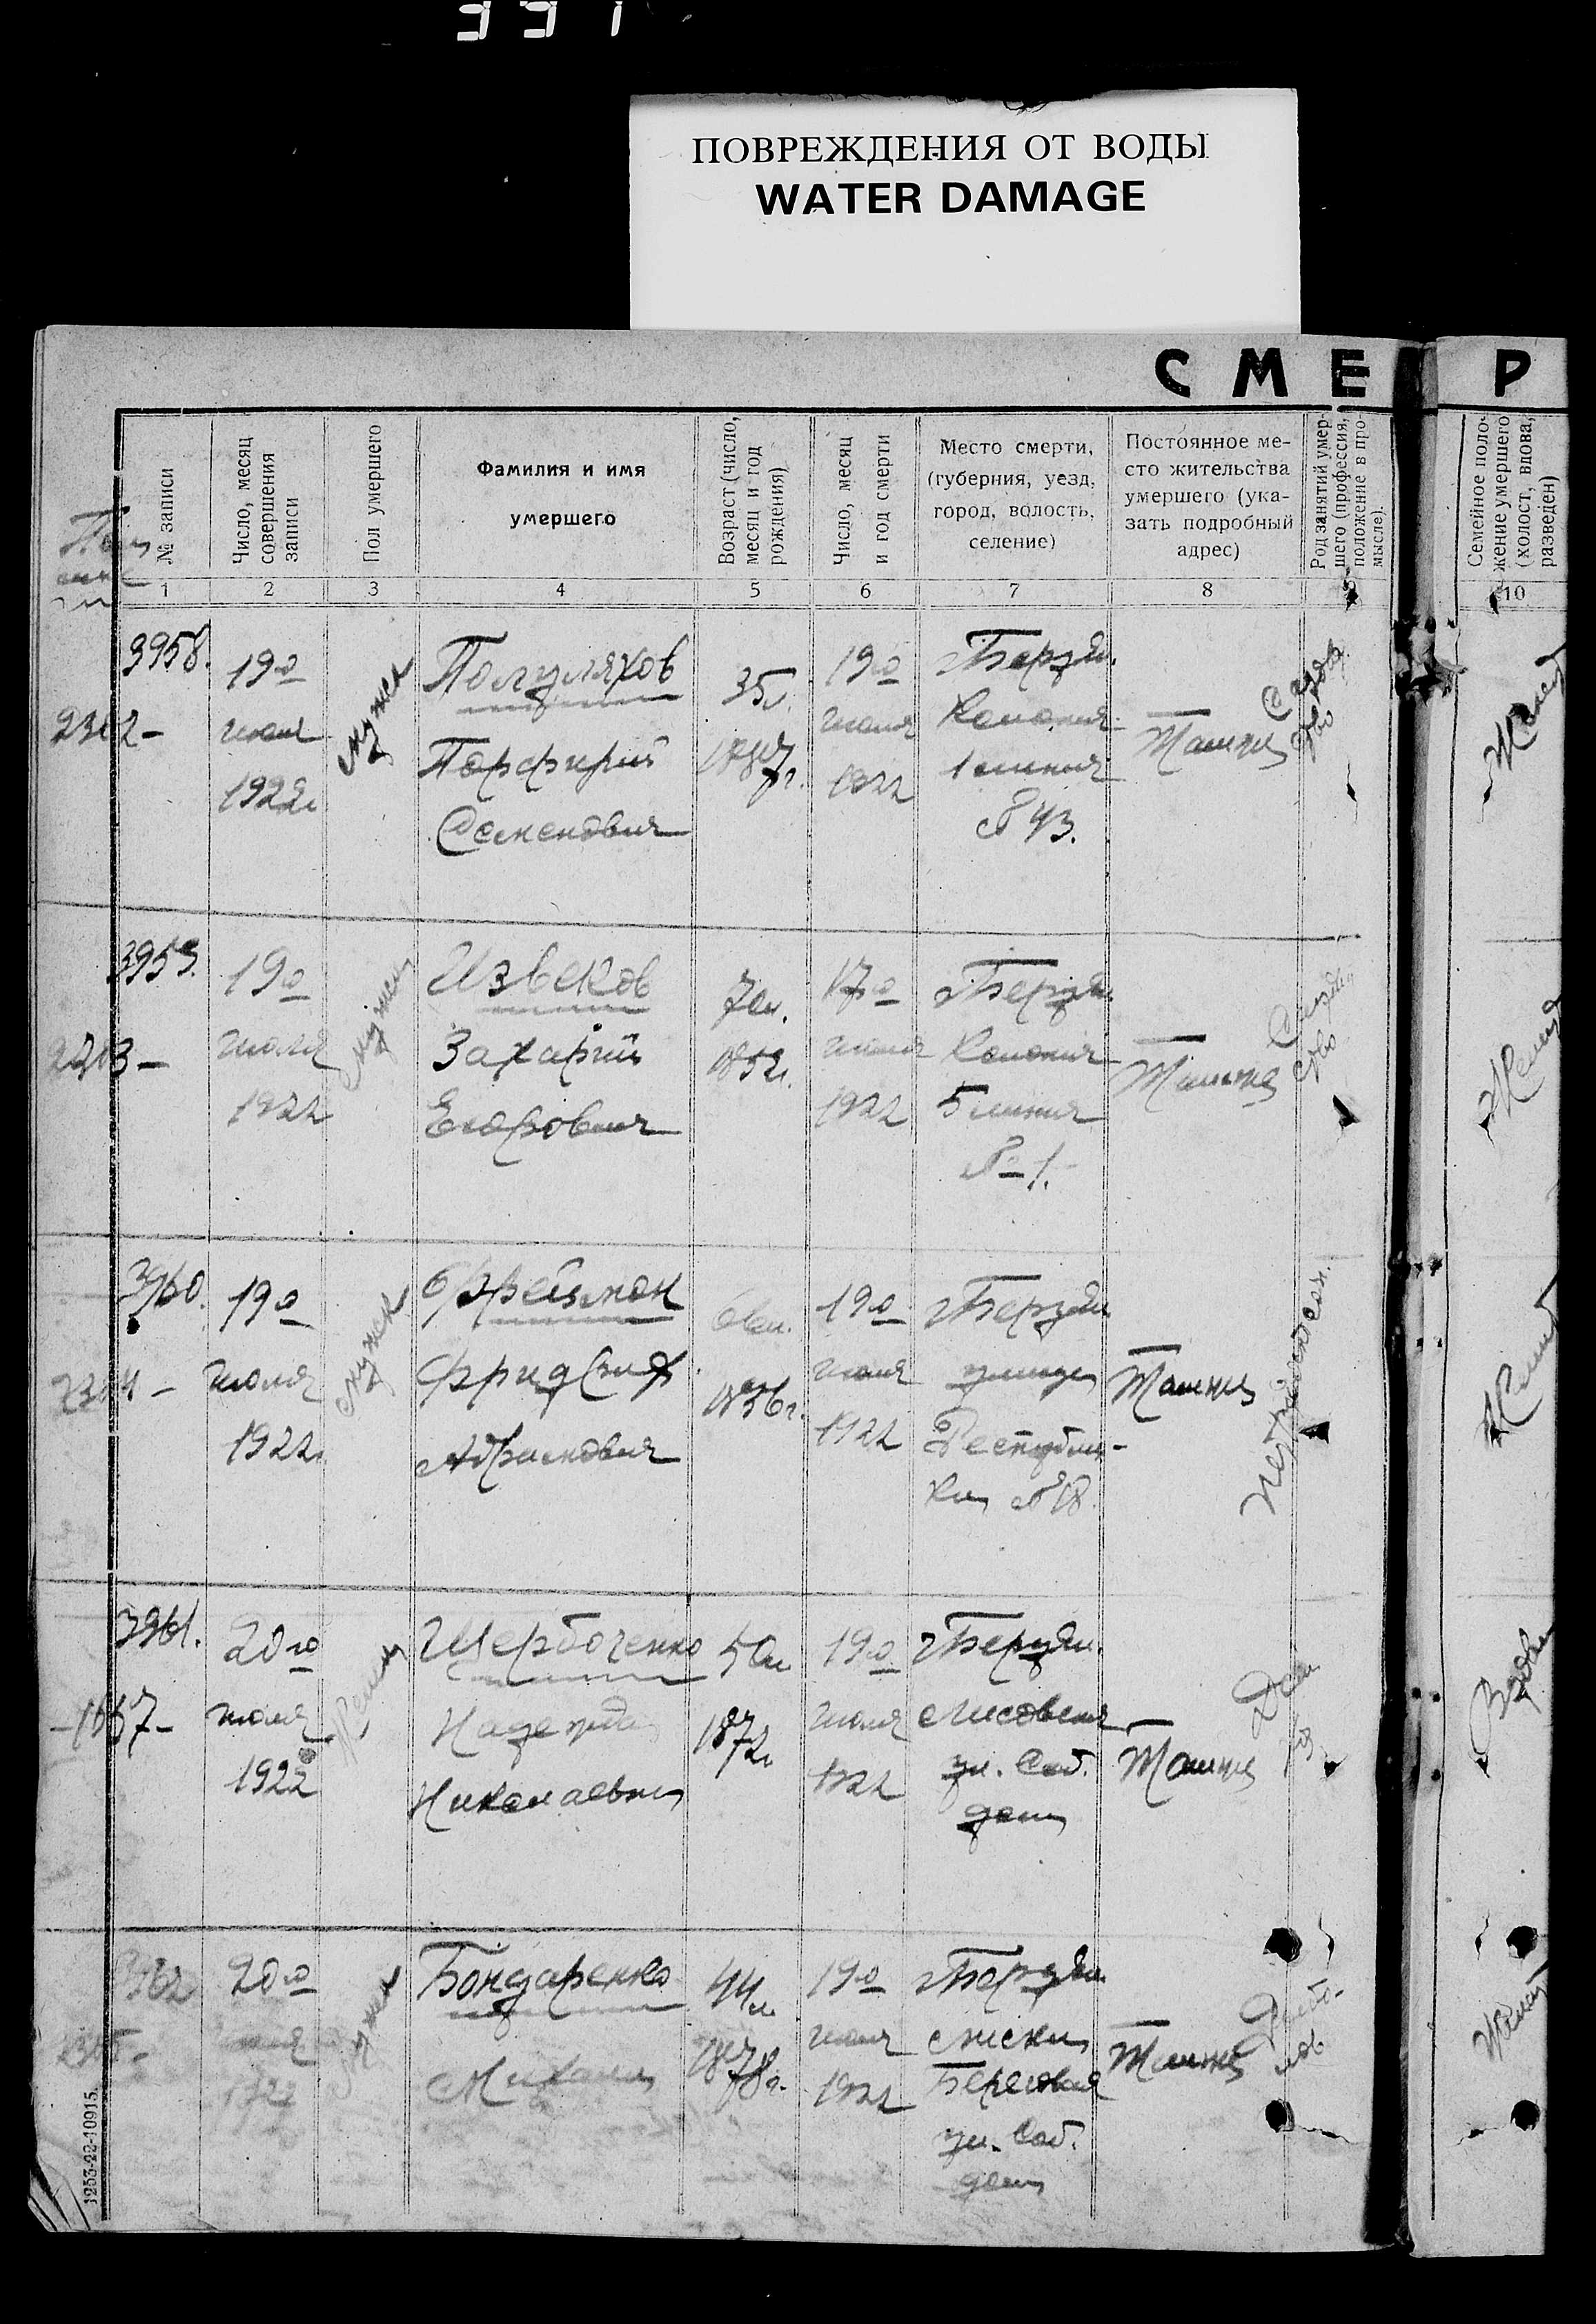 337
ПОВРЕЖДЕНИЯ ОТ ВОДЫ
WATER DAMAGE
СМЕР
№ записи
Число, месяц совершения записи
Пол умершего
Фамилия и имя
умершего
Возраст (число, месяц и год рождения)
Число, месяц и год смерти
Место смерти,
(губерния, уезд,
город, волость,
селение)
Постоянное ме-
сто жительства
умершего (ука-
зать подробный
адрес)
Род занятий умер-
шего (профессия,
положение в про-
мысле).
Семейное поло-
жение умершего
(холост, вдова,
разведен)
1 2 3 4 5 6 7 8 9 10
3958.
2312-
19го
июля
1922г
мужск
Полуляхов
Порфирий
Семенович
35л.
1887г.
19го
июля
1922
г Бердян.
Колония
1 линия
№ 43.
Там же
Садов
дво
Женат
3959.
2313-
19го
июля
1922
мужск
Извеков
Захарий
Егорович
70л.
1852г.
17го
июля
1922
г Бердян.
Колония
5 линия
№ 1.
Там же
Женат
3960.
19го
июля
1922г
мужск
Фрейман
Абрамович
1856г.
19го
июля
1922
г Бердян
улица
Республи-
ки № 18.
Там же
Женат
3961.
-1657-
20го
июля
1922
Женск
Щербоченко
Надежда
Николаевна
50л
1872г
19го
июля
1922
г Бердян.
Лисовская
ул. соб.
дом
Там же
Дом
Вдова
3962
20го
июля
1922
мужск
Бондаренко
Михаил
44л
1878г.
19го
июля
1922
г Бердян.
Лиски
Береговая
ул. соб.
дом
Там же
Рыбо-
лов
Женат
1253-22-10915.